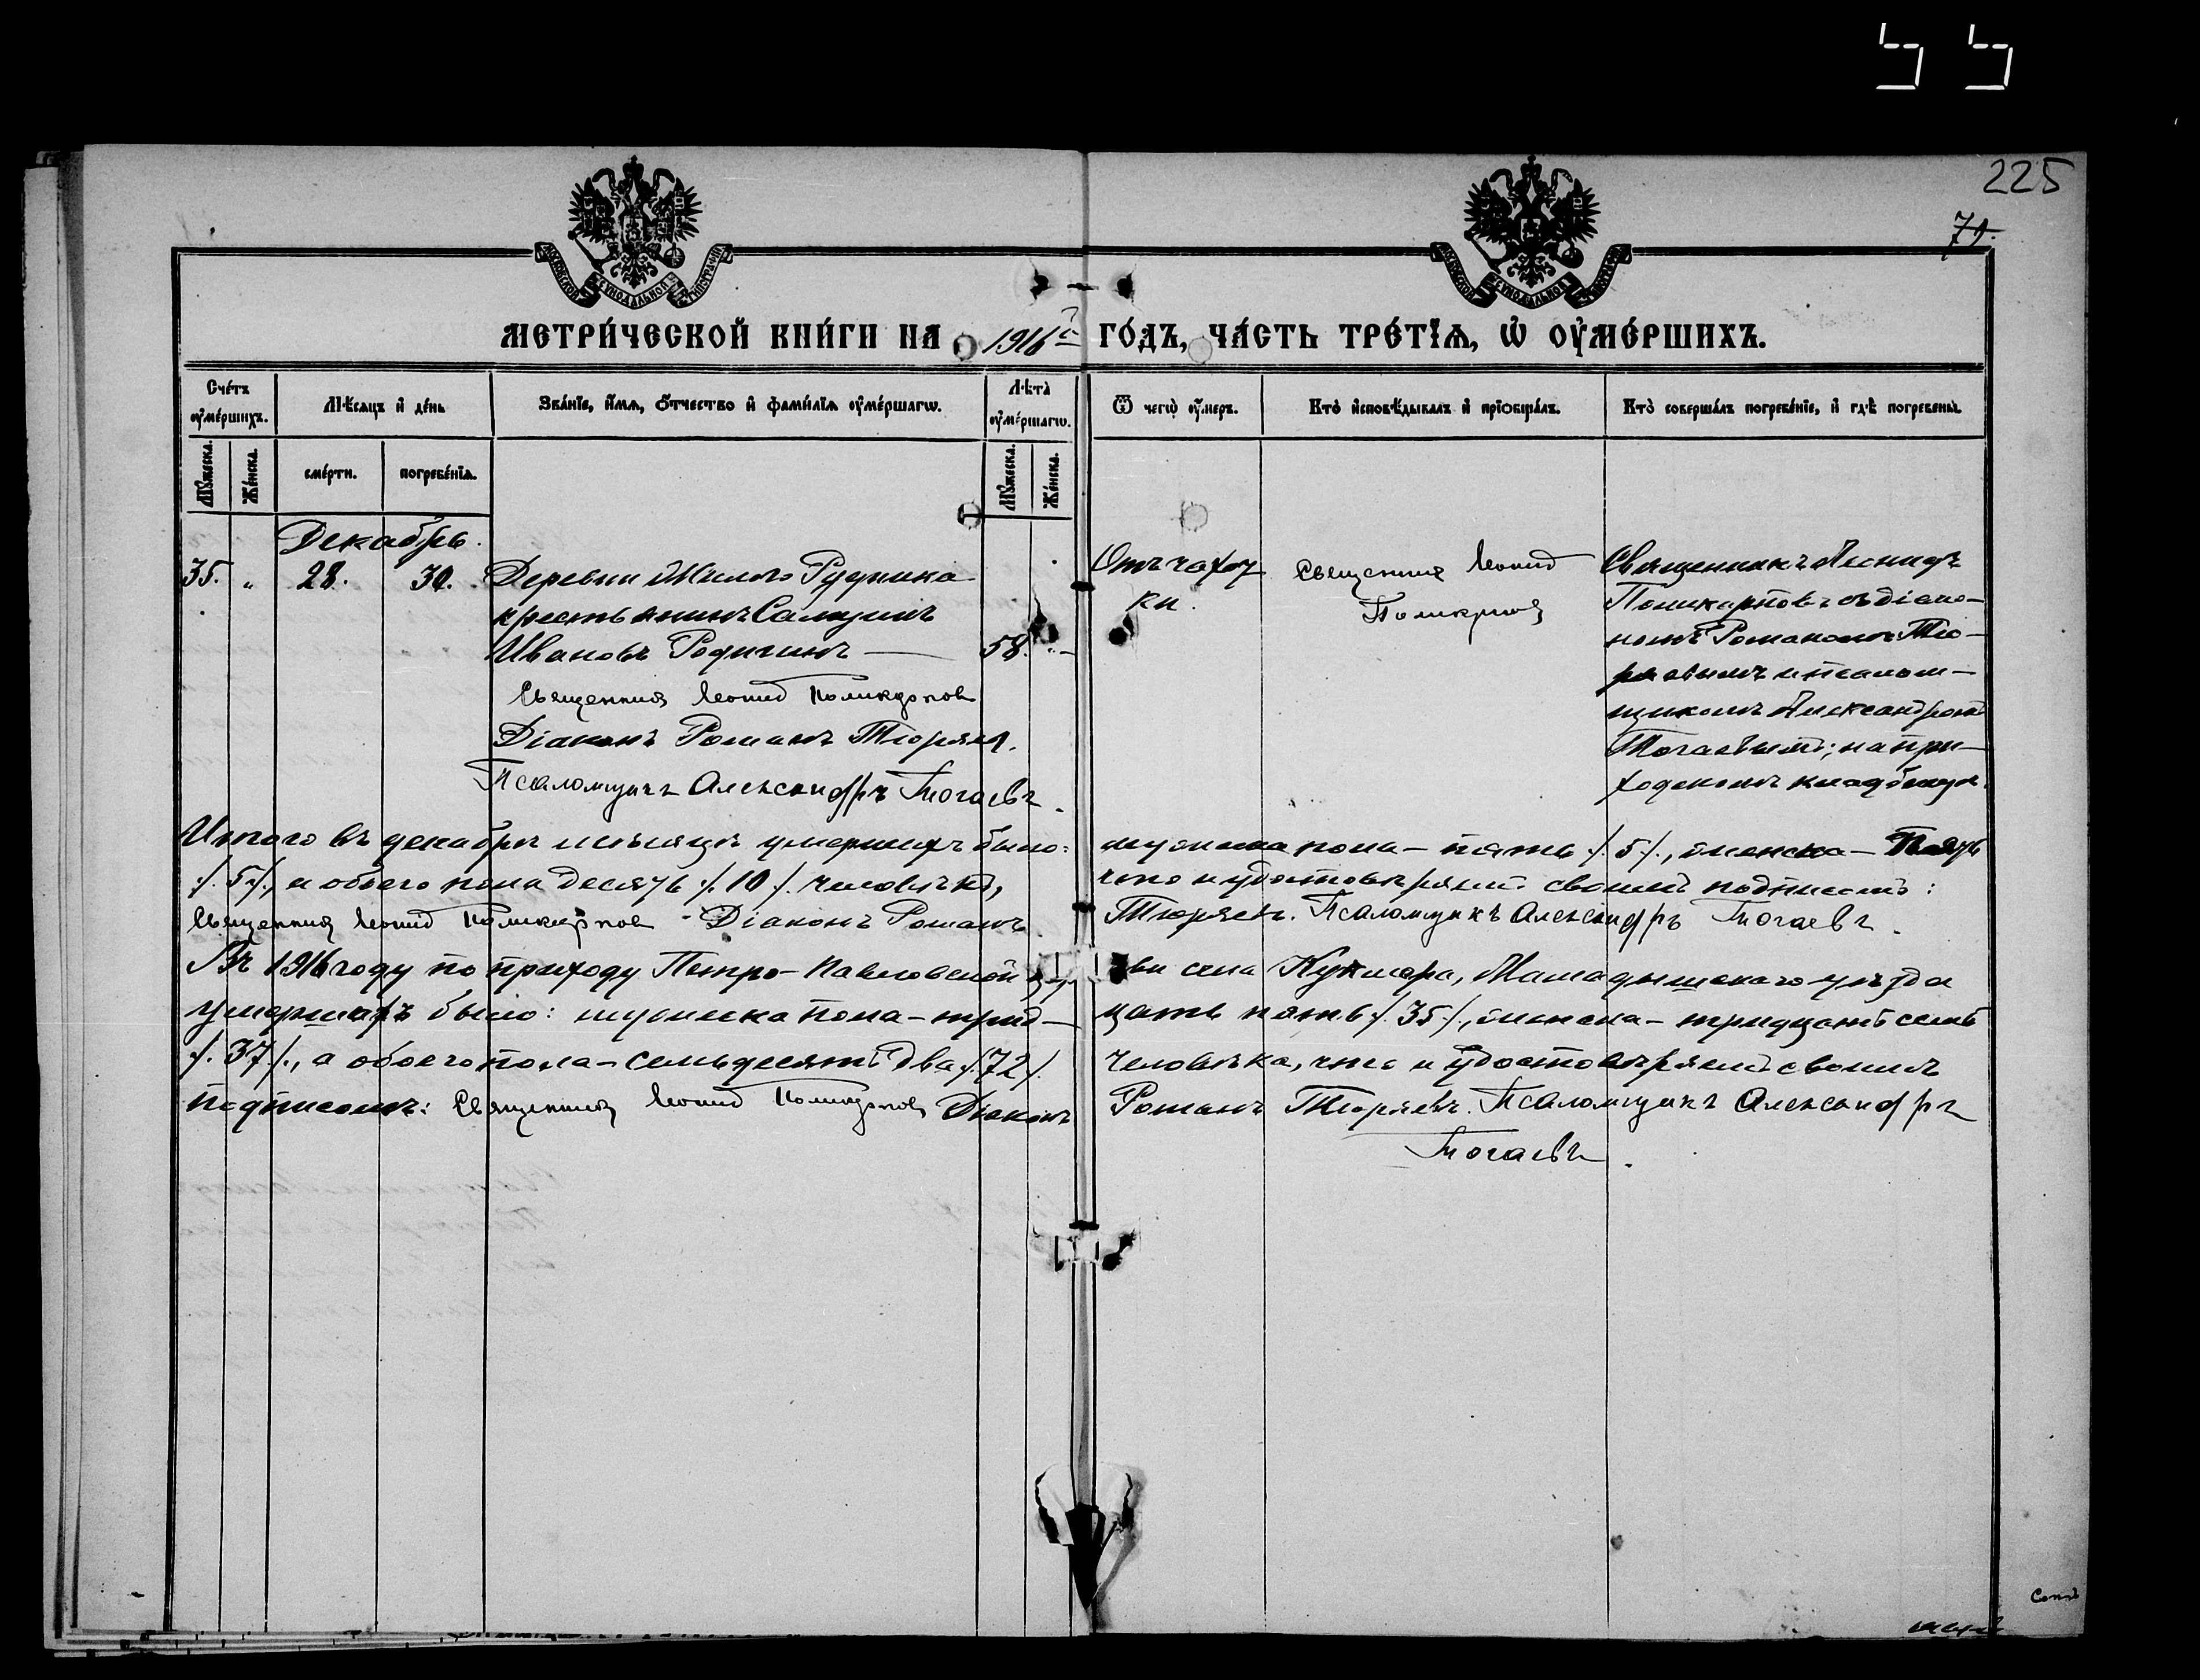 225
71.
МЕТРИ́ЧЕСКОЙ КНИ́ГИ НА 1916й ГО́ДЪ, ЧА́СТЬ ТРЕ́ТЇѦ, Ѡ҆ ОУ҆МЕ́РШИХЪ.
Сче́тъ оу҆ме́ршихъ.
Мѣ́сѧцъ и҆ де́нь
Зва́нїе, и҆́мѧ, ѻ҆́тчество и҆ фами́лїѧ оу҆ме́ршагѡ.
Лѣ́та оу҆ме́ршагѡ.
Ѿ чегѡ̀ оу҆́меръ.
Кто̀ и҆сповѣ́дывалъ и҆ прїѡбща́лъ.
Кто̀ соверша́лъ погребе́нїе, и҆ гдѣ̀ погребены̀.
Мꙋ́жеска.
Же́нска.
сме́рти.
погребе́нїѧ.
Мꙋ́жеска.
Же́нска.
Декабрь.
35. " 28. 30. Деревни Рудника
крестьянинъ
Ивановъ Родигинъ — 58. —
Священникъ Леонид Поликарпов
Діаконъ Романъ Тюряевъ.
Псаломщикъ Александръ Тогаевъ.
Отъ чахот
ки.
Священник Леонид
Поликарпов
Священникъ Леонидъ
Поликарповъ съ діако-
номъ Романомъ Тю-
ряевымъ и псалом-
щикомъ Александромъ
Тогаевымъ; на при-
ходскомъ кладбищѣ.
Итого въ декабрѣ мѣсяцѣ умершихъ было: мужеска пола — пять /. 5 /., женска — Пять
/. 5 /., а обоего пола десять /. 10 /. человѣкъ, что и удостовѣряемъ своимъ подписомъ:
Священник Леонид Поликарпов Діаконъ Романъ Тюряевъ. Псаломщикъ Александръ Тогаевъ.
Въ 1916 году по приходу Петро-Павловской церкви села Кукмора, Мамадышскаго уѣзда
умершихъ было: мужеска пола — тридцать пять /. 35 /., женска — тридцать семь
/. 37 /., а обоего пола — семьдесятъ два /. 72 /. человѣка, что и удостовѣряемъ своимъ
подписомъ: Священник Леонид Поликарпов Діаконъ Романъ Тюряевъ. Псаломщикъ Александръ
Тогаевъ.